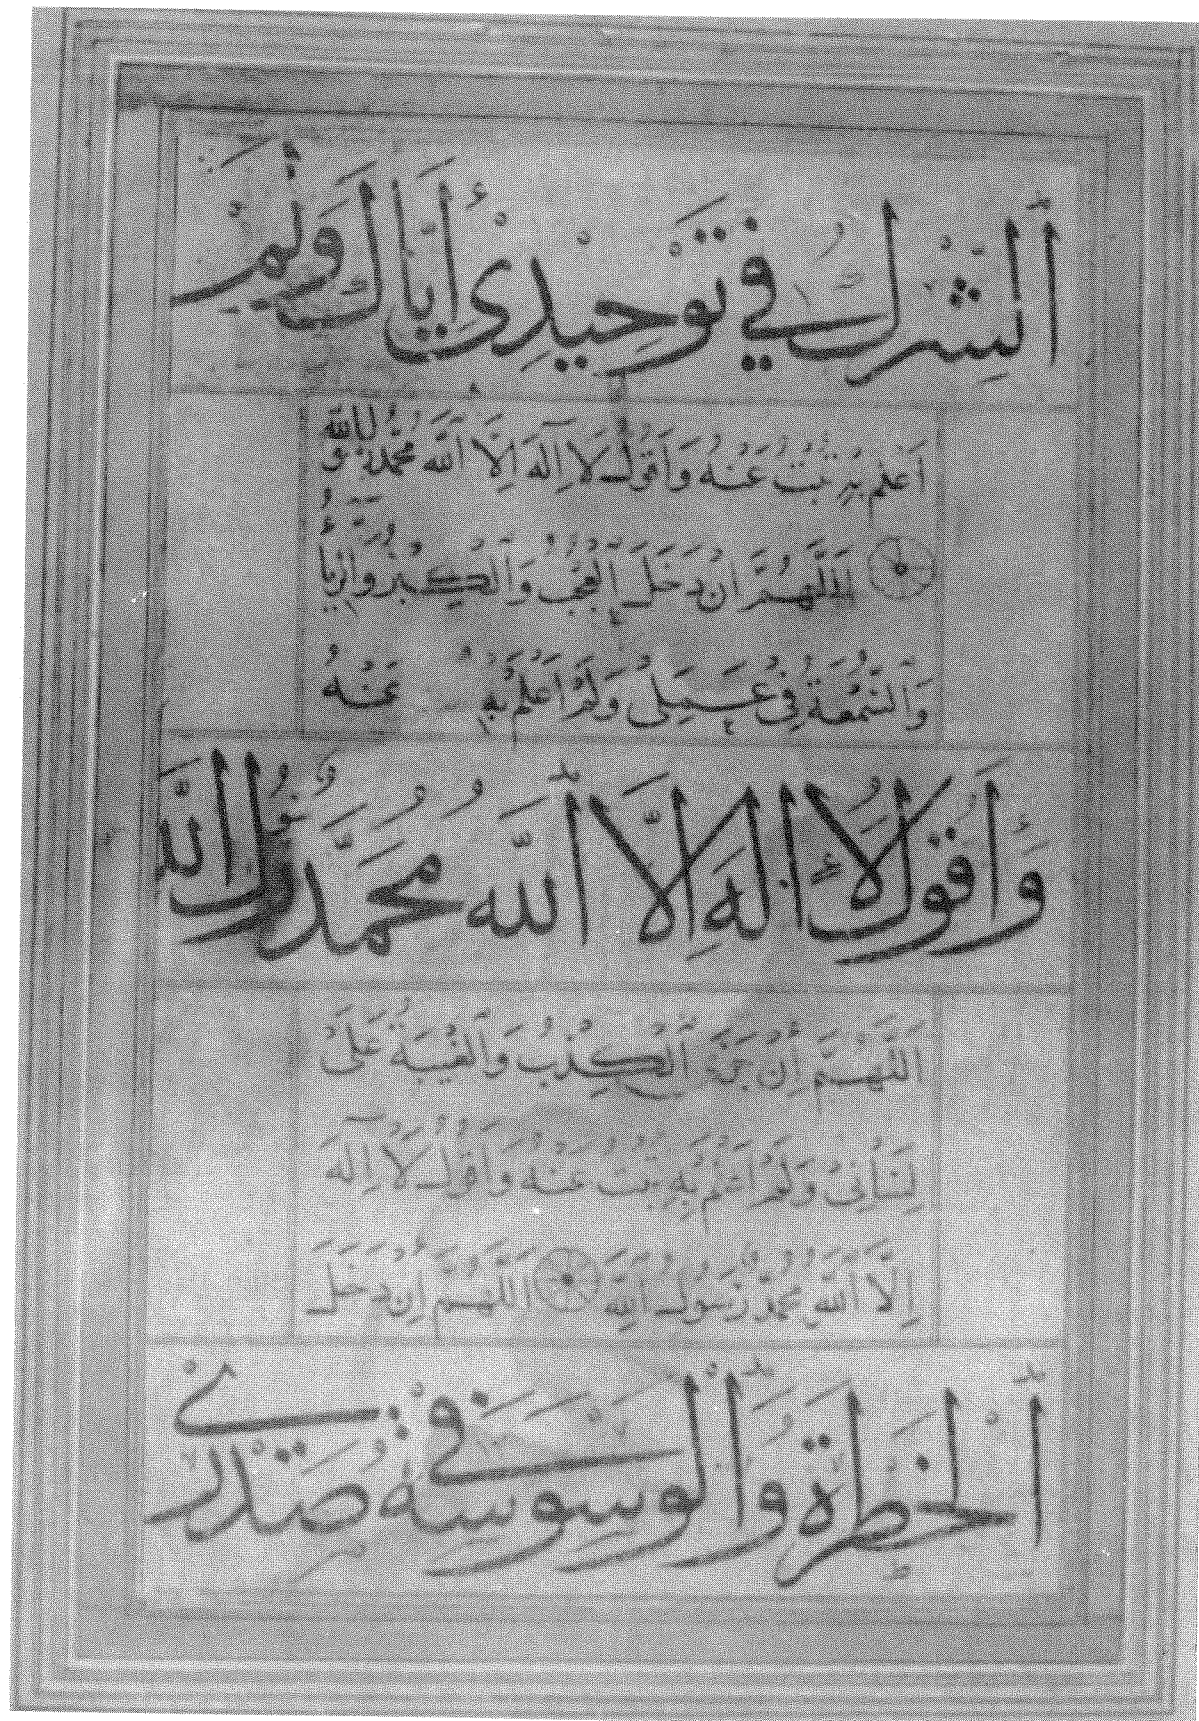 اَلشِّرْكُ فِي تَوْحِيْدِيْ اِيَّاكَ وَلَمْ
اَعْلَمْ بِهِ تُبْتُ عَنْهُ وَاَقُولُ لَا اِلٰهَ اِلَّا اللّٰهُ مُحَمَّدٌ رَسُولُ اللّٰهِ
اَللّٰهُمَّ اِنْ دَخَلَ الْعُجْبُ وَالْكِبْرُ وَالرِّيَاءُ
وَالسُّمْعَةُ فِي عَمَلِي وَلَمْ اَعْلَمْ بِهِ عَنْهُ
وَاَقُولُ لَا اِلٰهَ اِلَّا اللّٰهُ مُحَمَّدٌ رَسُولُ اللّٰهِ
اَللّٰهُمَّ اِنْ جَرَى الْكِذْبُ وَالْغِيْبَةُ عَلَى
لِسَانِي وَلَمْ اَعْلَمْ بِهِ تُبْتُ عَنْهُ وَاَقُولُ لَا اِلٰهَ
اِلَّا اللّٰهُ مُحَمَّدٌ رَسُولُ اللّٰهِ اَللّٰهُمَّ اِنْ دَخَلَ
اَلْخَطْرَةُ وَالْوَسْوَسَةُ فِي صَدْرِي